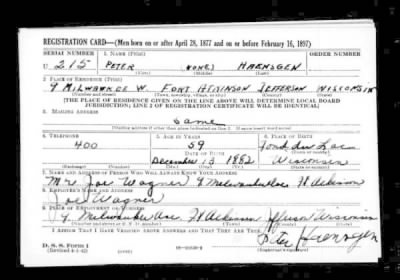 REGISTRATION CARD—(Men born on or after April 28, 1877 and on or before February 16, 1897)
SERIAL NUMBER 1. NAME (Print) ORDER NUMBER
U 215 PETER (NONE) HAENSGEN
(First) (Middle) (Last)
2. PLACE OF RESIDENCE (Print)
9 MILWAUKEE W. FORT ATKINSON JEFFERSON WISCONSIN
(Number and street) (Town, township, village, or city) (County) (State)
[THE PLACE OF RESIDENCE GIVEN ON THE LINE ABOVE WILL DETERMINE LOCAL BOARD
JURISDICTION; LINE 2 OF REGISTRATION CERTIFICATE WILL BE IDENTICAL]
3. MAILING ADDRESS
Same
[Mailing address if other than place indicated on line 2. If same insert word same]
4. TELEPHONE 5. AGE IN YEARS 6. PLACE OF BIRTH
400 59 Fond du Lac
DATE OF BIRTH (Town or county)
December 13 1882 Wisconsin
(Exchange) (Number) (Mo.) (Day) (Yr.) (State or country)
7. NAME AND ADDRESS OF PERSON WHO WILL ALWAYS KNOW YOUR ADDRESS
Mr Joe Wagner 9 Milwaukee Ft Atkinson
8. EMPLOYER'S NAME AND ADDRESS
Joe Wagner
9. PLACE OF EMPLOYMENT OR BUSINESS
9 Milwaukee Ave. Ft Atkinson Jefferson Wisconsin
(Number and street or R. F. D. number) (Town) (County) (State)
I AFFIRM THAT I HAVE VERIFIED ABOVE ANSWERS AND THAT THEY ARE TRUE.
D. S. S. Form 1
(Revised 4-1-42) (over)
Peter Haensgen